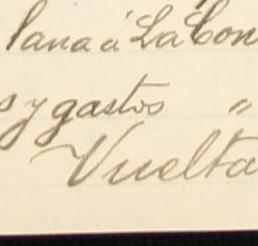 Pana á La Con
s y gastos "
Vuelta